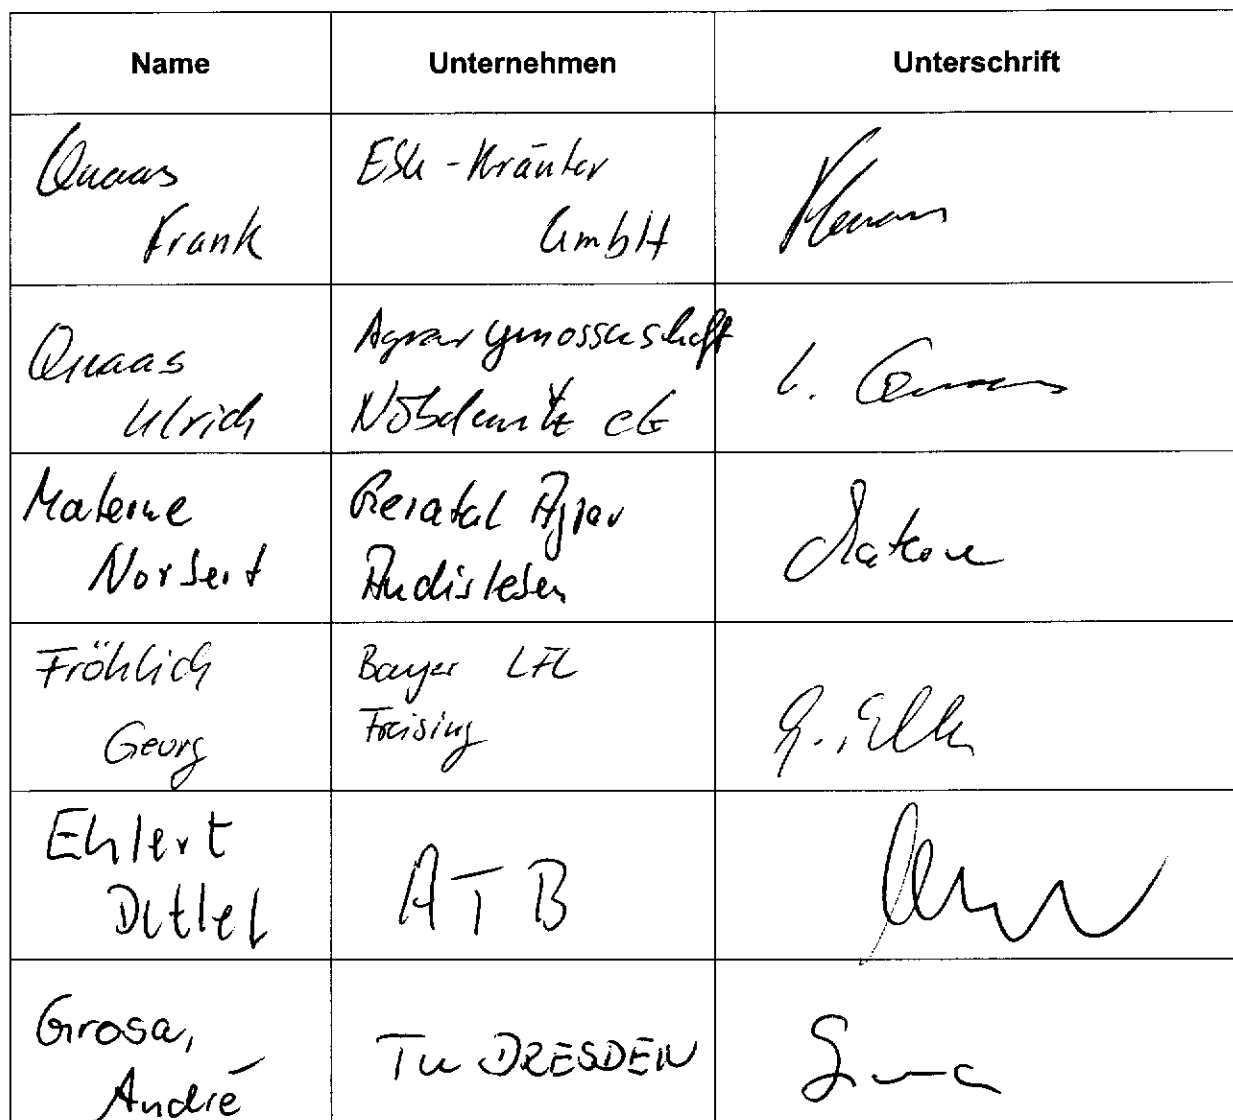 Name Unternehmen Unterschrift
Quaas
Frank
ESK-Kräuter
GmbH
Quaas
Ulrich
Agrargenossenschaft
Nöbdenitz eG
U. Quaas
Materne
Norbert
Geratal Agrar
Andisleben
Materne
Fröhlich
Georg
Bayer LFL
Freising
Ehlert
Detlef
ATB
Grosa,
André
TU DRESDEN